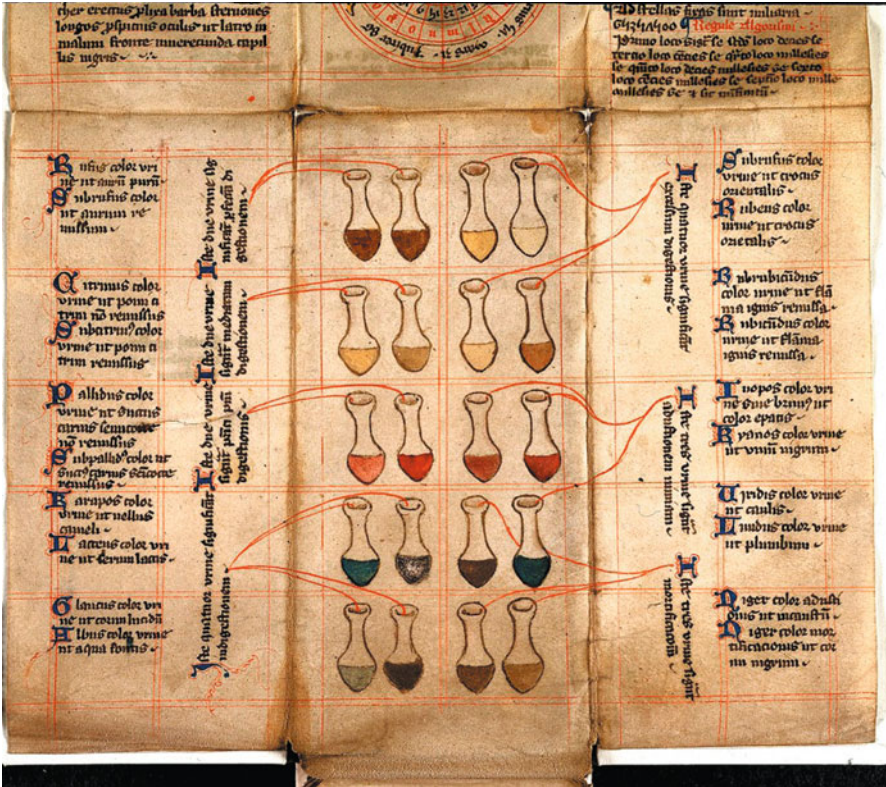 ther erectus plixa barba sternuones
longos pspicuis oculis ut latro in
malum fronte inuerecunda capil
lis nigris
Ad stellas fixas sunt miliaria
Regule Algorismi
Primo loco
tercio loco cēcies se qͣrto loco millesies
se quīto loco decies millesies se sexto
loco cēcies millesies se septīo loco mille
millesies & sic infinitū
Rufus color uri
ne ut aurū purū
Subrufus color
ut aurum re
missum
Citrinus color
urine ut pomi ci
trini nō remissus
Subcitrinꝰ color
urine ut pomi ci
trini remissus
Pallidus color
urine ut succus
carnis semicocte
nō remissus
Subpallidꝰ color ut
succꝰ carnis semicocte
remissus
Karapos color
urine ut uellus
cameli
Lacteus color uri
ne ut serum lactis
Glaucus color uri
ne ut cornu lucidū
Albus color urine
ut aqua fontis
Iste due urine sig
nificāt pfectā di
gestionem
Iste due urine
signīt mediatam
digestionem
Iste due urine
signīt
digestionis
Iste quatuor urine significāt
indigestionem
Iste quatuor urine significāt
excessum digestionis
Iste tres urine signīt
adustionem nimiam
Iste tres urine signīt
mortificacionē
Subrufus color
urine ut crocus
orientalis
Rubeus color
urine ut crocus
orietalis
Subrubicūdus
color urine ut flā
ma ignis remissa
Rubicūdus color
urine ut flāma
ignis remissa
Inopos color uri
ne siue brunꝰ ut
color epatis
Kyanos color urine
ut uinū nigrum
Uiridis color urine
ut caulis
Liuidus color urine
ut plumbum
Niger color adusti
onis ut incaustū
Niger color mor
tificacionis ut cor
nu nigrum